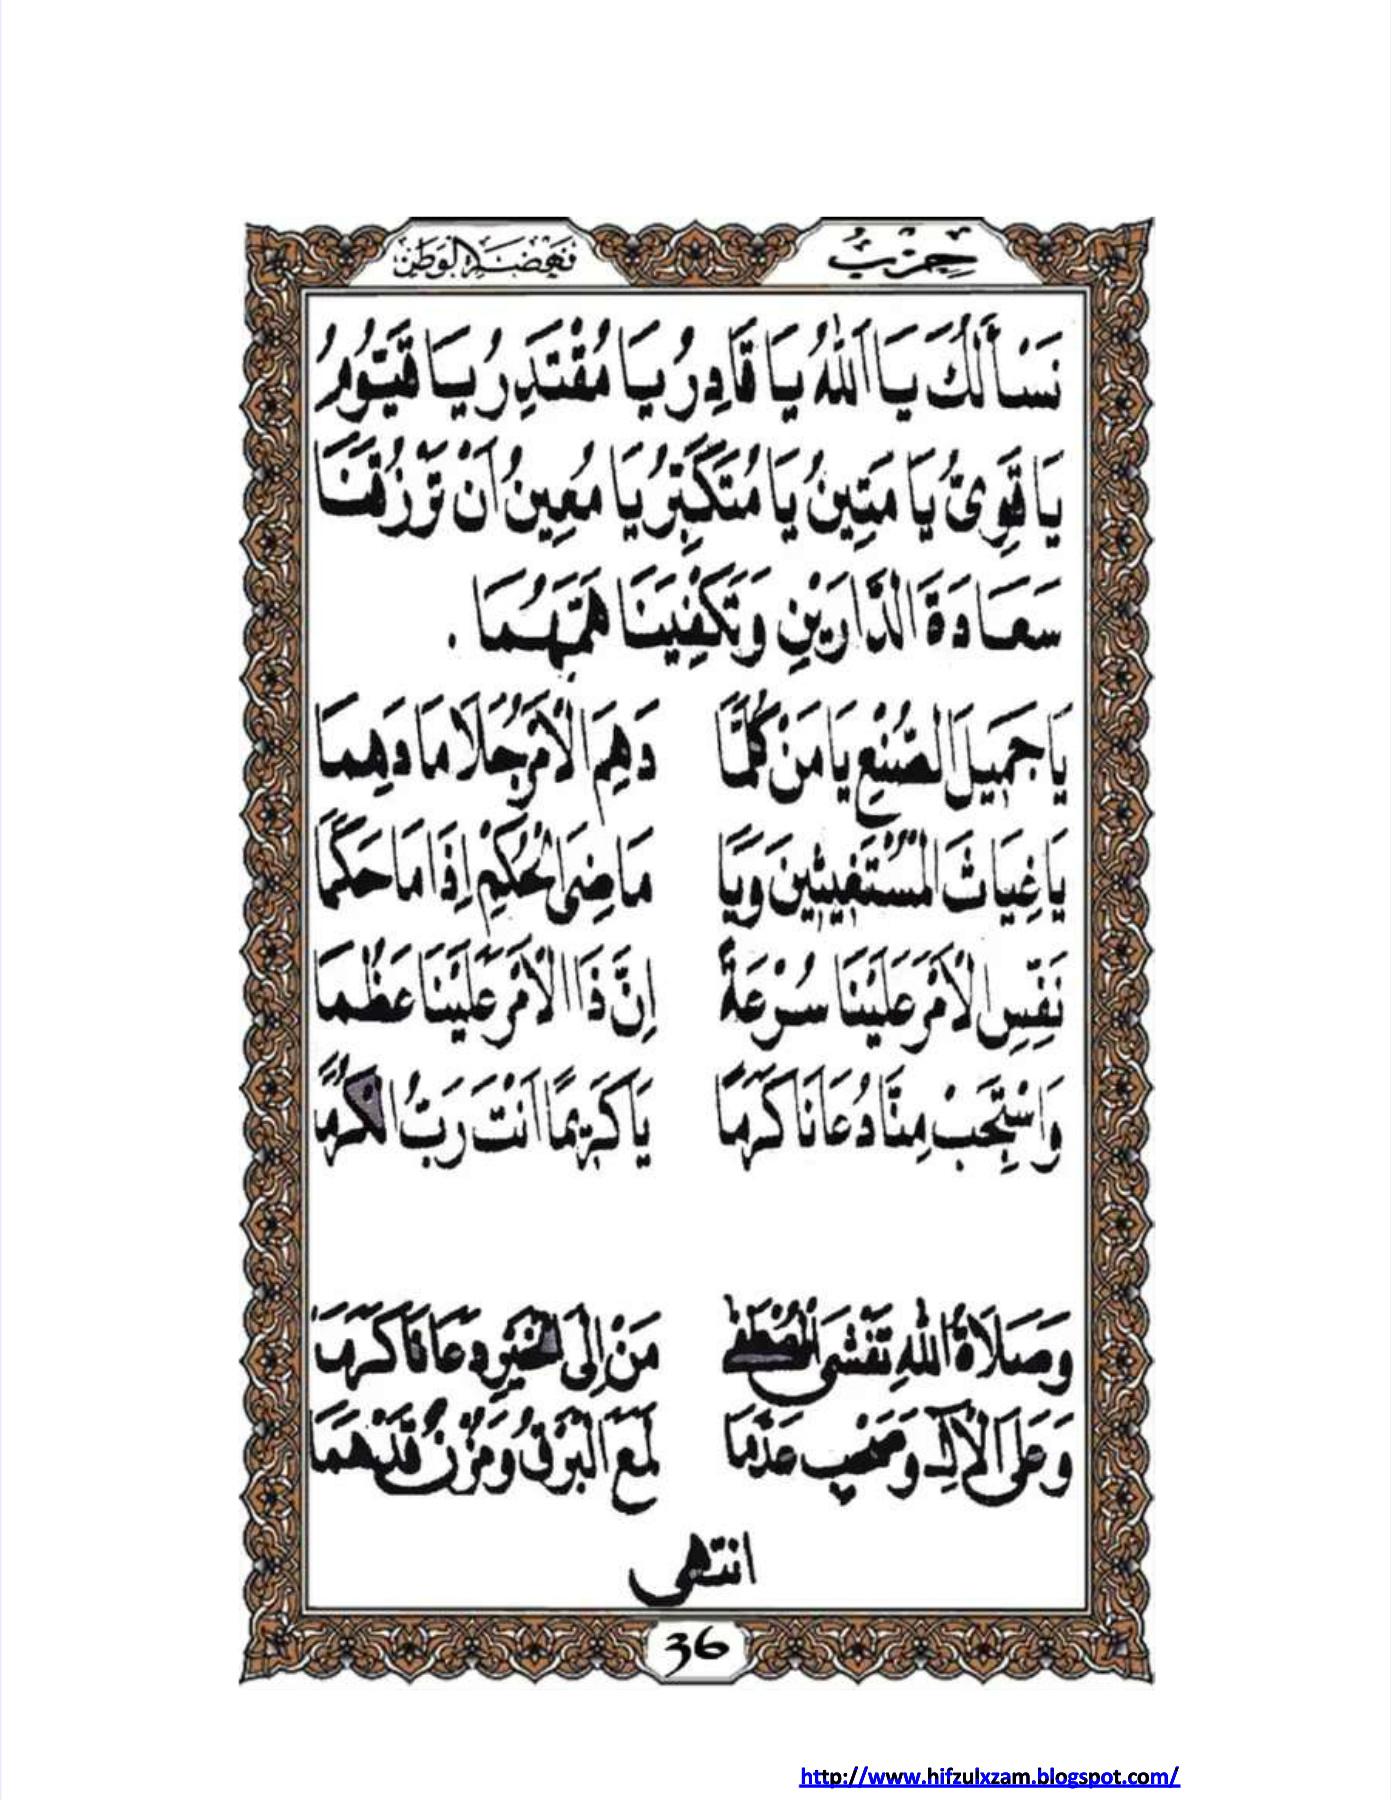 حِزْبُ نَهْضَةِ الْوَطَنِ
نَسْأَلُكَ يَا اَللهُ يَا قَادِرُ يَا مُقْتَدِرُ يَا قَيُّوْمُ
يَا قَوِيُّ يَا مَتِينُ يَا مُتَكَبِّرُ يَا مُعِينُ اَنْ تَرْزُقَنَا
سَعَادَةَ الدَّارَيْنِ وَتَكْفِيَنَا هَمَّهُمَا .
يَا جَمِيلَ الصُّنْعِ يَا مَنْ كُلَّمَا دَهِمَ الْأَمْرُ جَلَا مَا دَهِمَا
يَا غِيَاثَ الْمُسْتَغِيثِينَ وَيَا مَاضِيَ الْحُكْمِ إِذَا مَا حَكَمَا
نَفِّسِ الْأَمْرَ عَلَيْنَا سُرْعَةً اِنَّ ذَا الْأَمْرَ عَلَيْنَا عَظُمَا
وَاسْتَجِبْ مِنَّا دُعَانَا كَرَمًا يَا كَرِيمًا اَنْتَ رَبُّ الْكُرَمَا
وَصَلَاةُ اللهِ تَغْشَى الْمُصْطَفَى مَنْ اِلَى الْخَيْرِ دَعَانَا كَرَمَا
وَعَلَى الْآلِ وَصَحْبٍ عَدَّمَا لَمَعَ الْبَرْقُ وَمُزْنٌ قَدْ هَمَا
انتهى
36
http://www.hifzulxzam.blogspot.com/